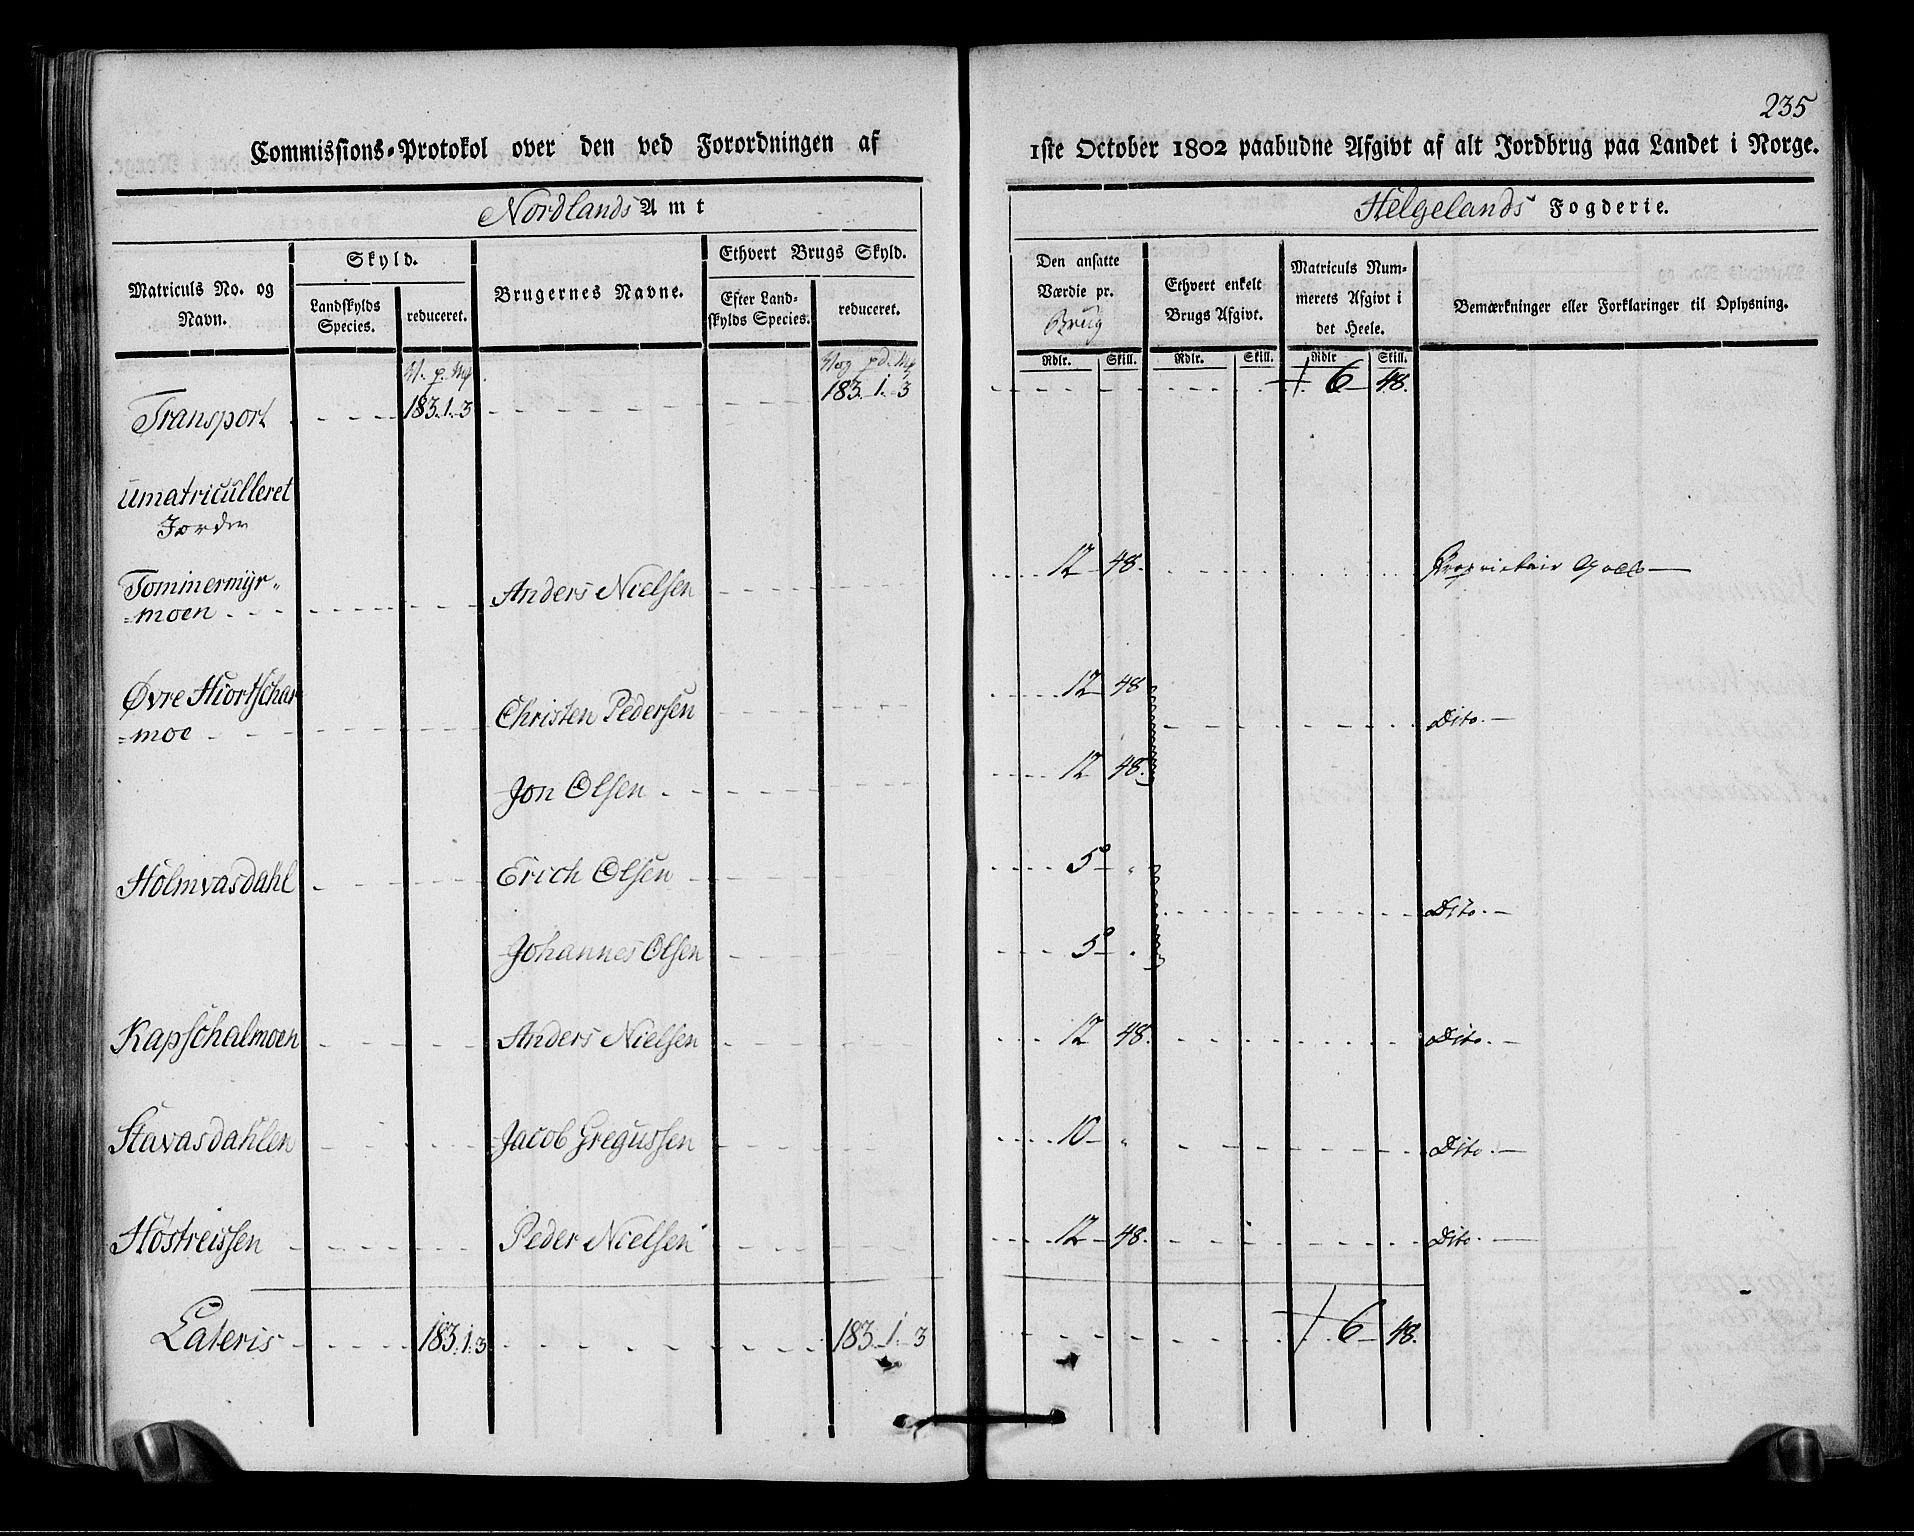 235
Commissions-Protokol over den ved Forordningen af 1ste October 1802 paabudne Afgivt af alt Jordbrug paa Landet i Norge.
Nordlands Amt
Helgelands Fogderie.
Matriculs No. og Navn.
Skyld.
Landskylds Species.
reduceret.
Brugernes Navne.
Ethvert Brugs Skyld.
Efter Landskylds Species.
reduceret.
Den ansatte Værdie pr. Brug
Ethvert enkelt Brugs Afgivt.
Matriculs Nummerets Afgivt i det Heele.
Bemærkninger eller Forklaringer til Oplysning.
Rdlr. Skill. Rdlr. Skill. Rdlr Skill.
Transport 183. 1. 3 183. 1. 3 6 48.
Umatriculleret
Jorder
Tommermÿr-
=moen Anders Nielsen 12 48. Proprietair Gods
Øvre Hiortschar
=moe Christen Pedersen 12 48 Dito.
Jon Olsen 12 48.
Holmvasdahl Erich Olsen 5 "
Dito.
Johannes Olsen 5 "
Kapschalmoen Anders Nielsen 12 48. Dito.
Stavasdahlen Jacob Gregussen 10 " Dito.
Høstreissen Peder Nielsen 12 48. Dito.
Lateris 183. 1. 3 183. 1. 3 6 48.